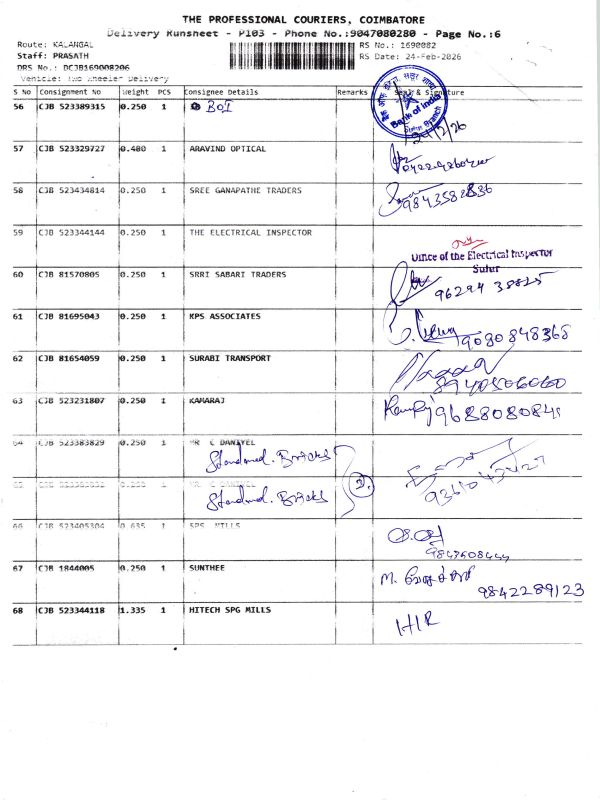 THE PROFESSIONAL COURIERS, COIMBATORE
Delivery Runsheet - P103 - Phone No.:9047080280 - Page No.:6
Route: KALANGAL
RS No.: 1690082
Staff: PRASATH
RS Date: 24-Feb-2026
DRS No.: DCJB169008206
Vehicle: Two Wheeler Delivery
S No Consignment No Weight PCS Consignee Details Remarks Seal & Signature
56 CJB 523389315 0.250 1 BOI
Bank of India
Branch
57 CJB 523329727 0.480 1 ARAVIND OPTICAL
58 CJB 523434814 0.250 1 SREE GANAPATHE TRADERS
59 CJB 523344144 0.250 1 THE ELECTRICAL INSPECTOR
Office of the Electrical Inspector
Sulur
60 CJB 81570805 0.250 1 SRRI SABARI TRADERS
96294 38825
61 CJB 81695043 0.250 1 KPS ASSOCIATES
9080848368
62 CJB 81654059 0.250 1 SURABI TRANSPORT
63 CJB 523231807 0.250 1 KAMARAJ
64 CJB 523383829 0.250 1 MR C DANIYEL
Standard. Bricks
65
Standard. Bricks
2.
66 CJB 523405304 0.635 1 SPS MILLS
67 CJB 1844005 0.250 1 SUNTHEE
9842289123
68 CJB 523344118 1.335 1 HITECH SPG MILLS